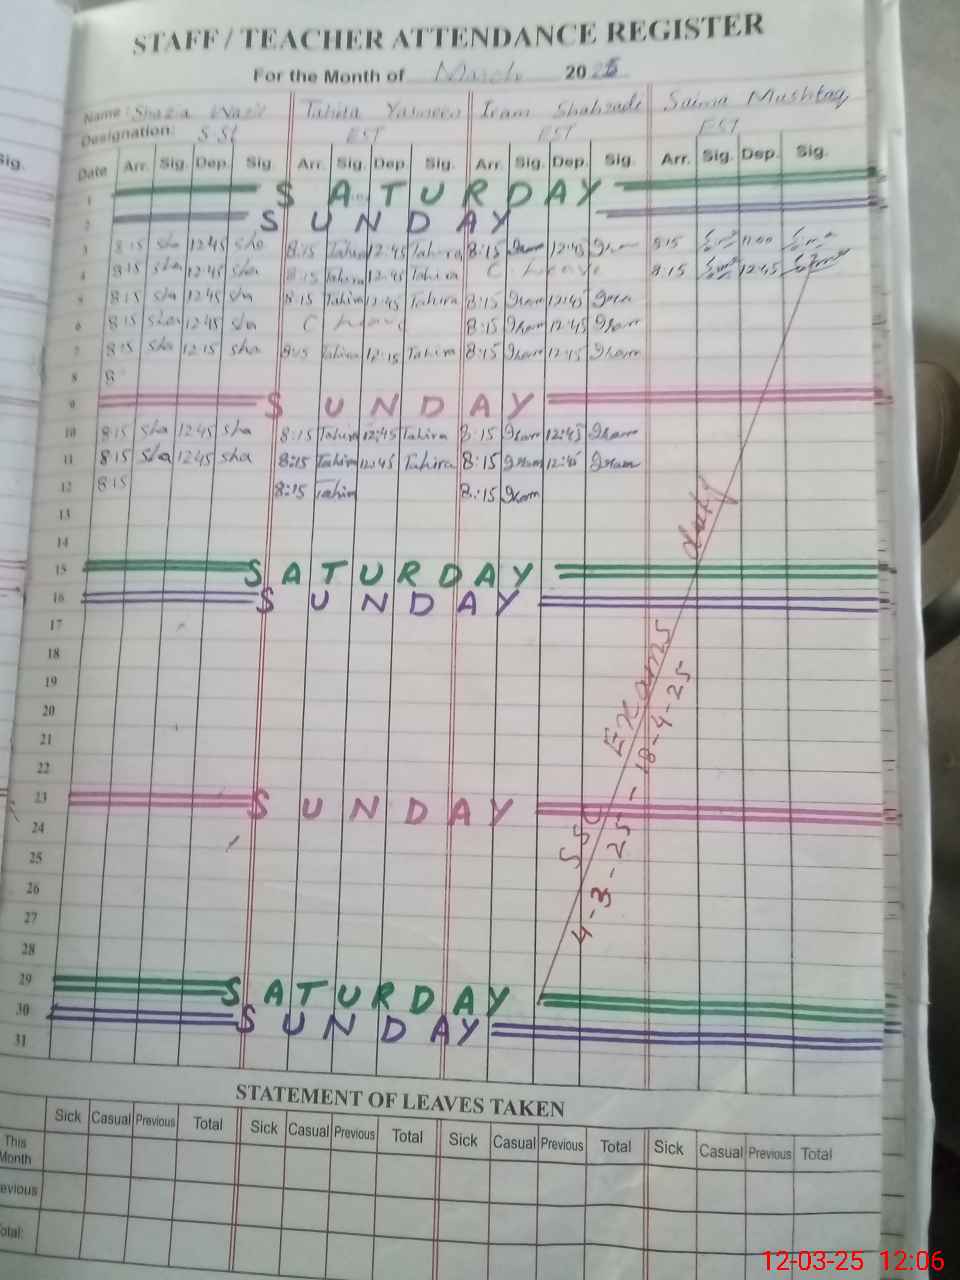 STAFF / TEACHER ATTENDANCE REGISTER
For the Month of March 2025
Name: Shazia Wazir Tahira Yasmeen Iram Shahzadi Saima Mushtaq
Designation: SST EST EST EST
Date Arr. Sig. Dep. Sig. Arr. Sig. Dep. Sig. Arr. Sig. Dep. Sig. Arr. Sig. Dep. Sig.
1 SATURDAY
2 SUNDAY
3 8:15 sha 12:45 sha 8:15 Tahira 12:45 Tahira 8:15 Iram 12:45 Iram 8:15 11:00
4 8:15 sha 12:45 sha 8:15 Tahira 12:45 Tahira C Leave 8:15 12:45
5 8:15 sha 12:45 sha 8:15 Tahira 12:45 Tahira 8:15 Iram 12:45 Iram
6 8:15 sha 12:45 sha C Leave 8:15 Iram 12:45 Iram
7 8:15 sha 12:15 sha 8:15 Tahira 12:15 Tahira 8:15 Iram 12:45 Iram
8 8
9 SUNDAY
10 8:15 sha 12:45 sha 8:15 Tahira 12:45 Tahira 8:15 Iram 12:45 Iram
11 8:15 sha 12:45 sha 8:15 Tahira 12:45 Tahira 8:15 Iram 12:45 Iram
12 8:15 8:15 Tahira 8:15 Iram
13
14
15 SATURDAY
16 SUNDAY
17
18
19
20
21
22
23 SUNDAY
24
25
26
27
28
29 SATURDAY
30 SUNDAY
31
SSC Exams duty
4-3-25 - 18-4-25
STATEMENT OF LEAVES TAKEN
Sick Casual Previous Total Sick Casual Previous Total Sick Casual Previous Total Sick Casual Previous Total
This Month
evious
otal:
Sig.
12-03-25 12:06